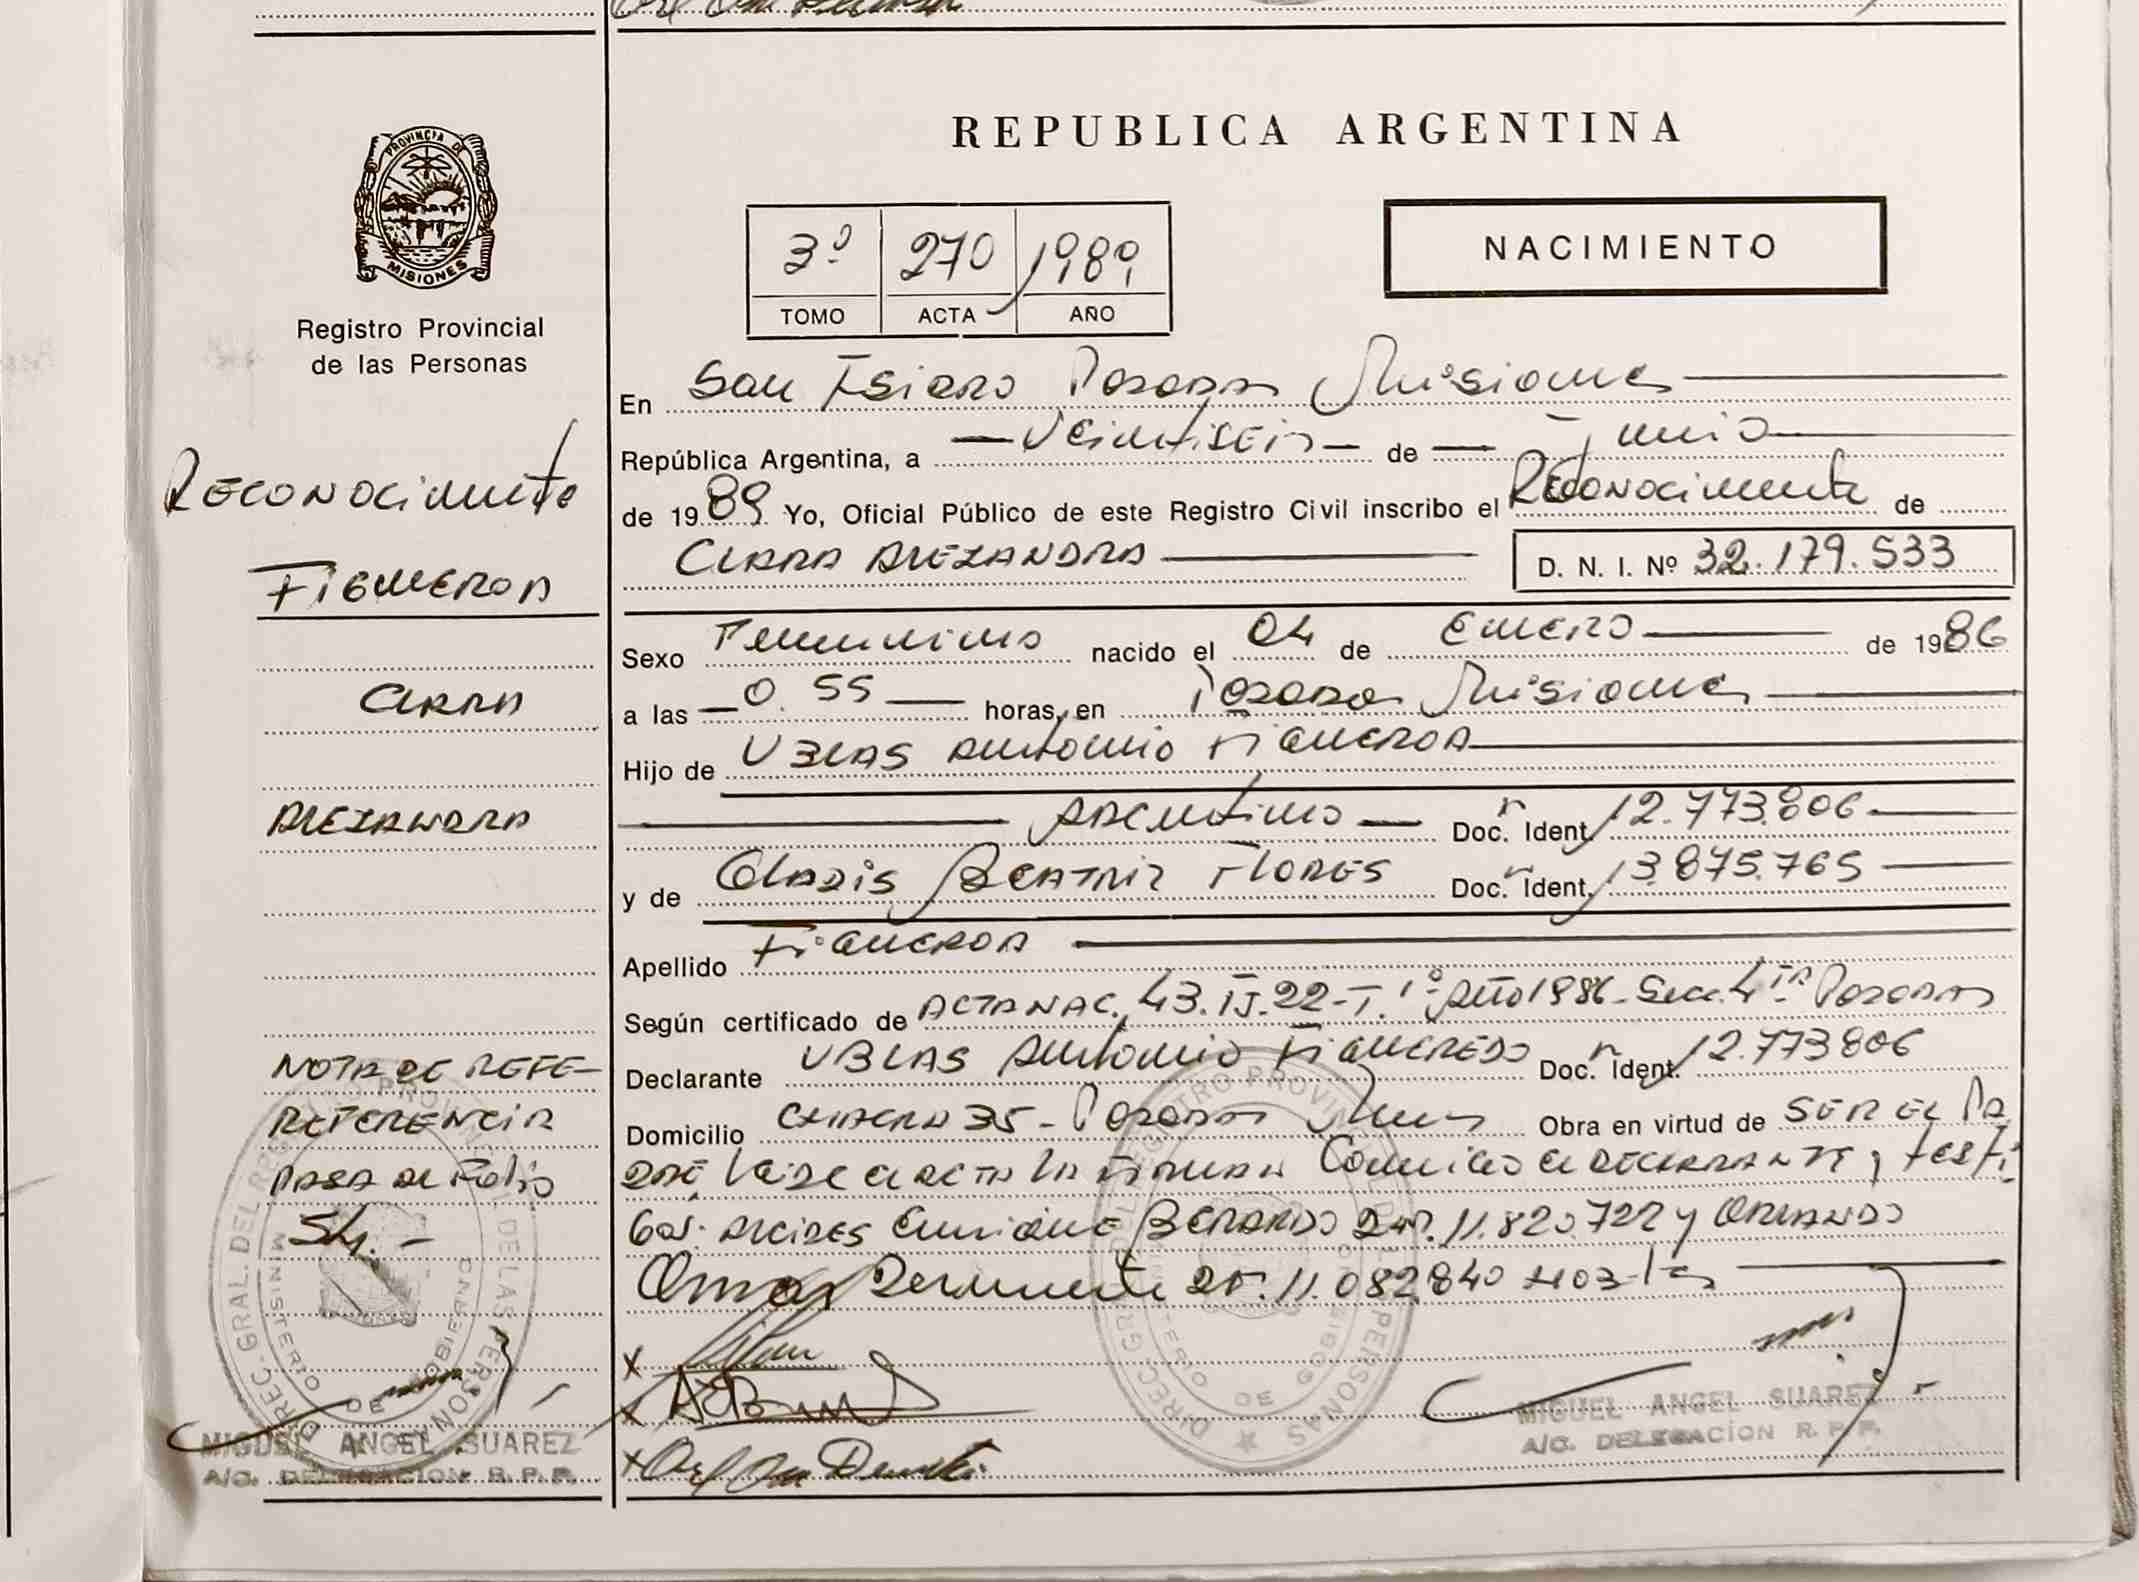 PROVINCIA DE
MISIONES
Registro Provincial
de las Personas
Reconocimiento
FIGUEROA
CLARA
ALEJANDRA
NOTA DE REFE-
REFERENCIA
PASA AL Folio
54.-
DIREC. GRAL. DEL REGISTRO PROVINCIAL DE LAS PERSONAS
MINISTERIO DE GOBIERNO
MIGUEL ANGEL SUAREZ
A/C. DELEGACION R. P. P.
REPUBLICA ARGENTINA
3º 270 1989
TOMO ACTA AÑO
NACIMIENTO
En San Isidro Posadas Misiones
República Argentina, a veintiseis de Junio
de 1989 Yo, Oficial Público de este Registro Civil inscribo el Reconocimiento de
CLARA ALEJANDRA D. N. I. Nº 32.179.533
Sexo Femenino nacido el 04 de Enero de 1986
a las 0.55 horas, en Posadas Misiones
Hijo de UBLAS Antonio FIGUEROA
Argentino Doc. Ident. 12.773.806
y de Gladis Beatriz Flores Doc. Ident. 13.875.765
Apellido Figueroa
Según certificado de ACTA NAC. 43. Fº 22-T. 1º Año 1986- Secc. 4ta Posadas
Declarante UBLAS Antonio FIGUEREDO Doc. Ident. 12.773806
Domicilio CHACRA 35- Posadas Mnes Obra en virtud de SER EL PA
DRE, Leida el acta la firman conmigo el DECLARANTE y testi
gos. Alcides Enrique BERARDO 11.820.727 y ORLANDO
Omar 11.082.840
MIGUEL ANGEL SUAREZ
A/C. DELEGACION R. P. P.
DIREC. GRAL. DEL REGISTRO PROVINCIAL DE LAS PERSONAS
MINISTERIO DE GOBIERNO